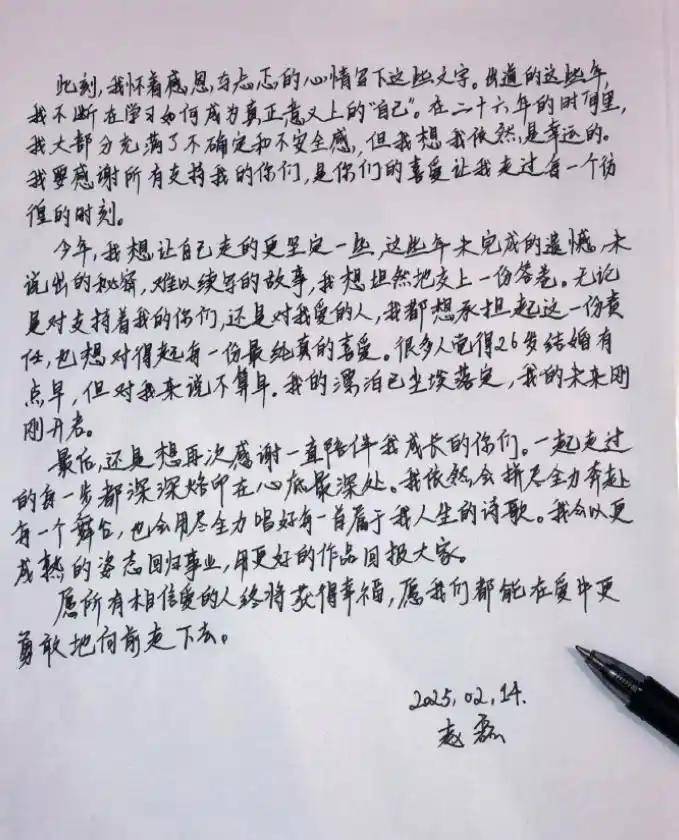 此刻,我怀着感恩与忐忑的心情写下这些文字。出道的这些年,
我不断在学习如何成为真正意义上的“自己”。在二十六年的时间里,
我大部分充满了不确定和不安全感,但我想我依然是幸运的。
我要感谢所有支持我的你们,是你们的喜爱让我走过每一个彷
徨的时刻。
今年,我想让自己走的更坚定一些,这些年未完成的遗憾,未
说出的秘密,难以续写的故事,我想坦然地交上一份答卷。无论
是对支持着我的你们,还是对我爱的人,我都想承担起这一份责
任,也想对得起每一份最纯真的喜爱。很多人觉得26岁结婚有
点早,但对我来说不算早。我的漂泊已尘埃落定,我的未来刚
刚开启。
最后,还是想再次感谢一直陪伴我成长的你们。一起走过
的每一步都深深烙印在心底最深处。我依然会拼尽全力奔赴
每一个舞台,也会用尽全力唱好每一首属于我人生的诗歌。我会以更
成熟的姿态回归事业,用更好的作品回报大家。
愿所有相信爱的人终将获得幸福,愿我们都能在爱中更
勇敢地向前走下去。
2025.02.14.
赵磊